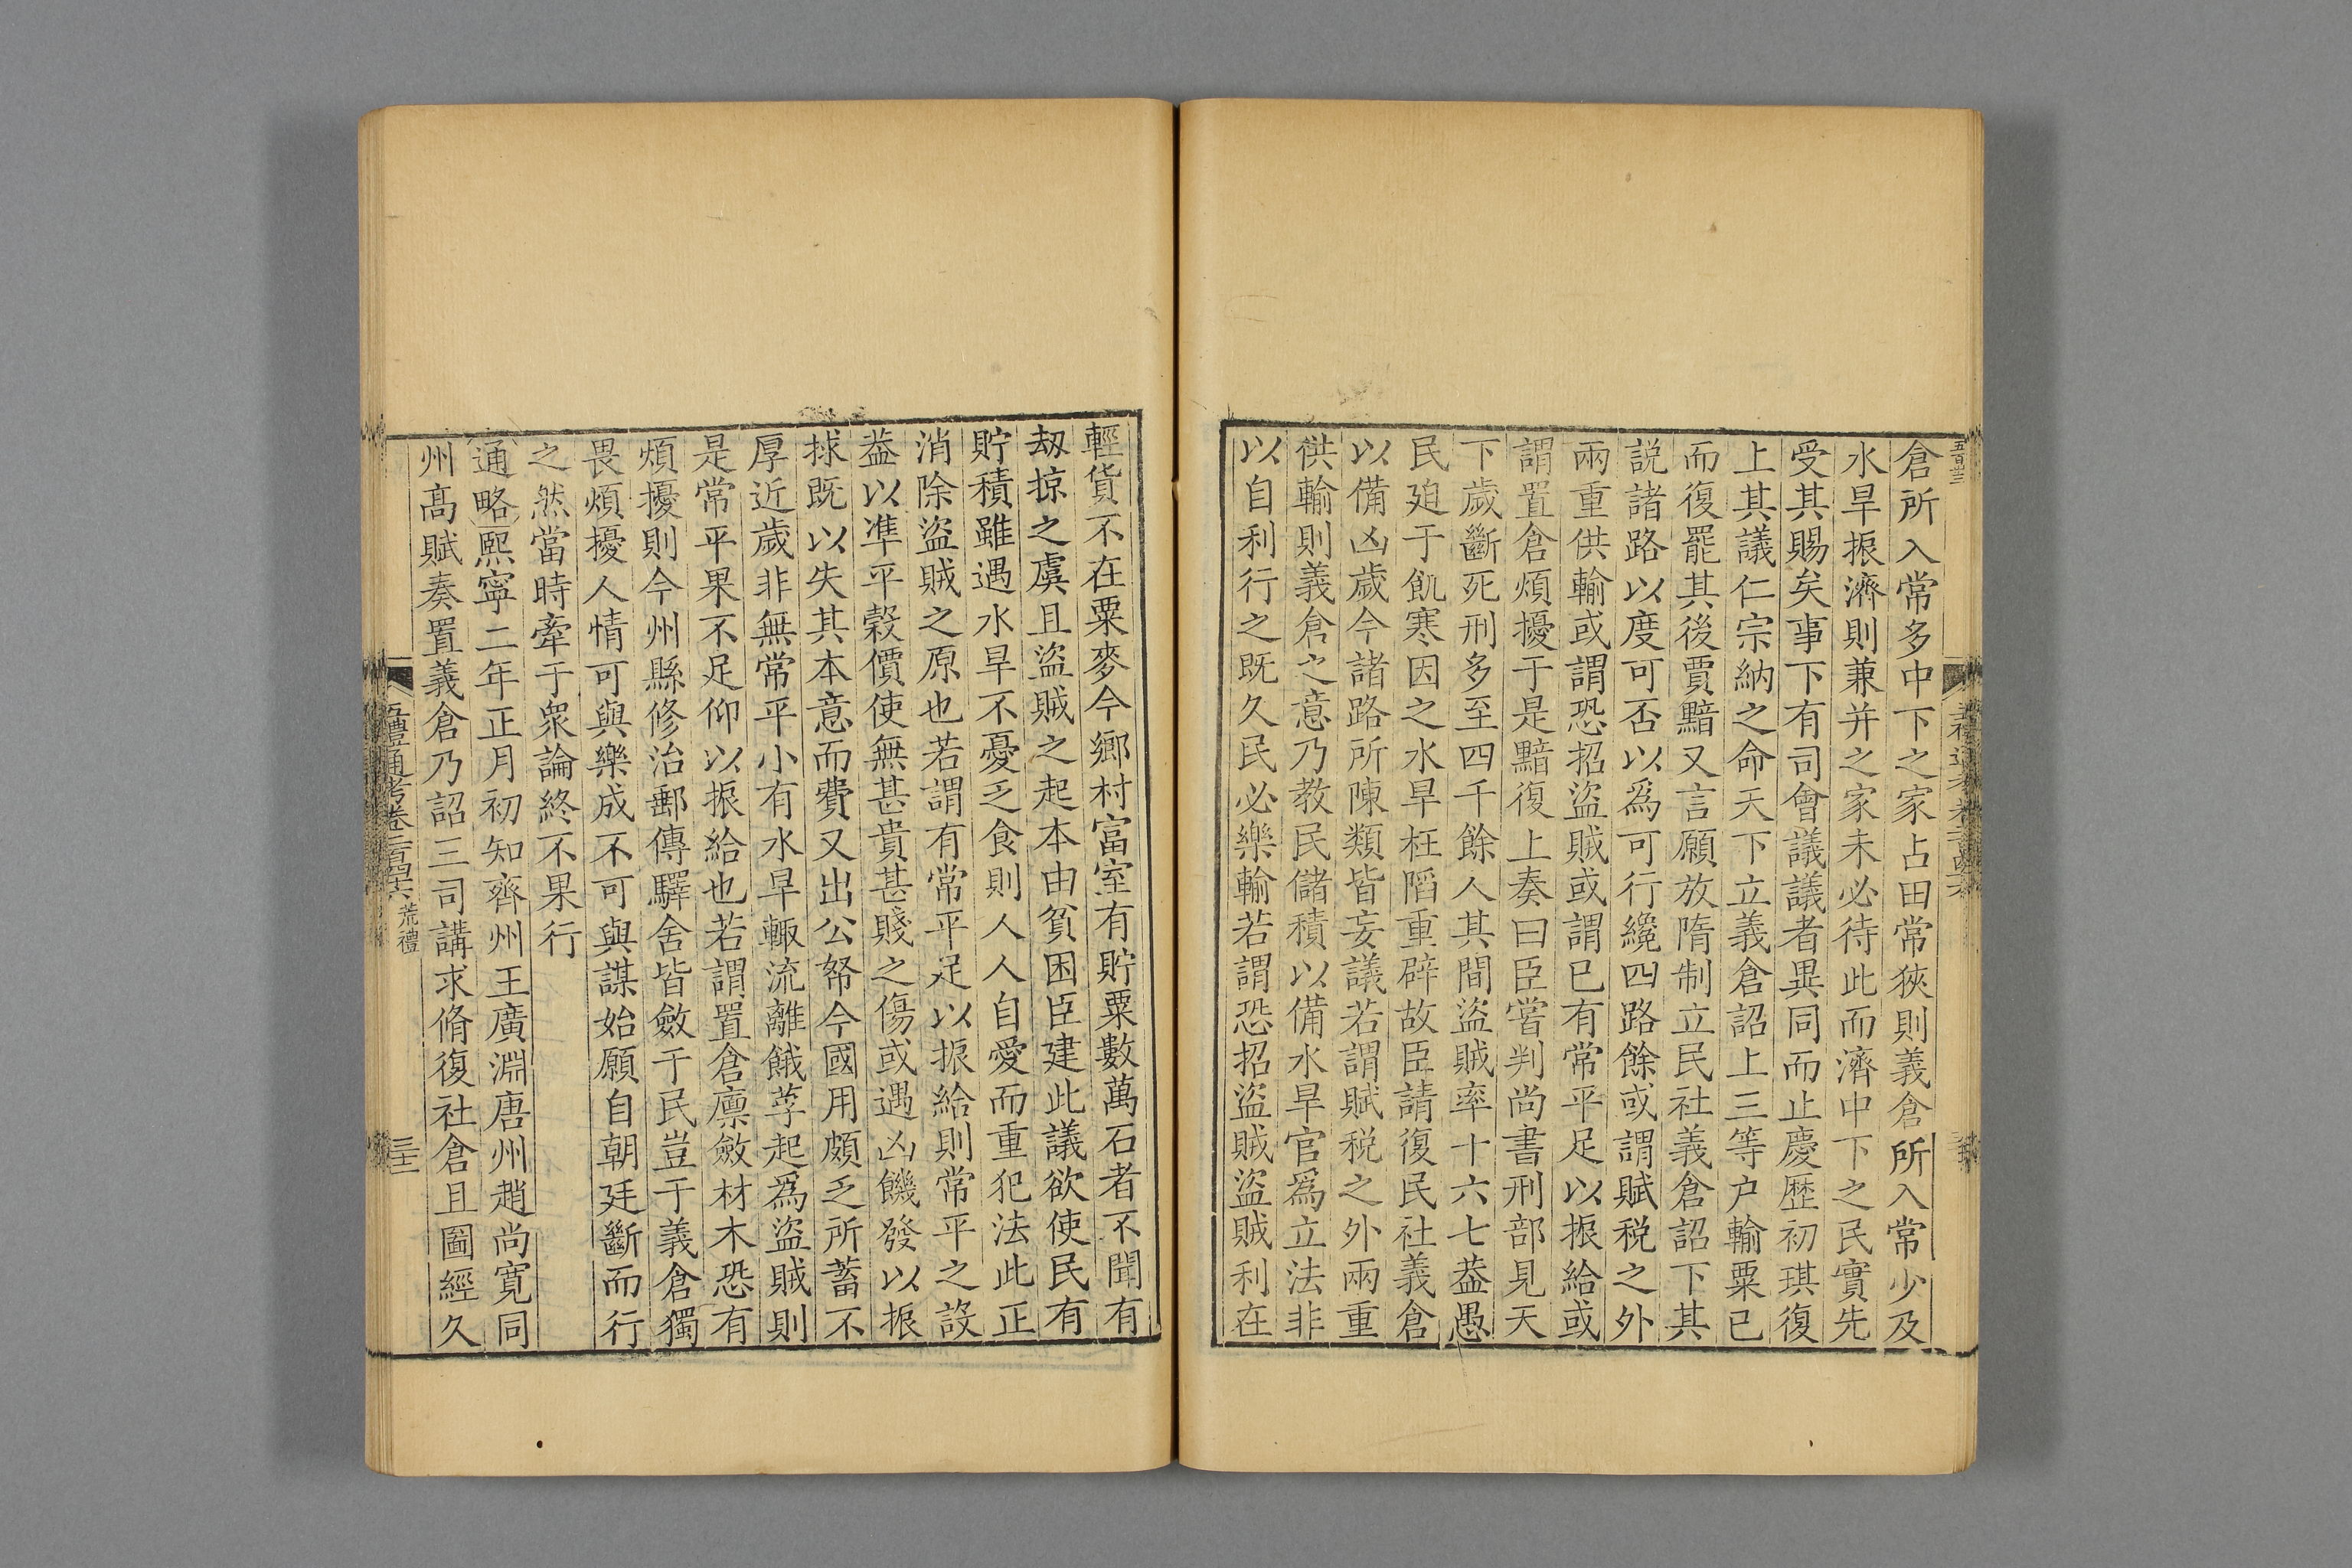 倉所入常多中下之家占田常狹則義倉所入常少及
水旱振濟則兼并之家未必待此而濟中下之民實先
受其賜矣事下有司會議議者異同而止慶歴初琪復
上其議仁宗納之命天下立義倉詔上三等户輸粟已
而復罷其後賈黯又言願放隋制立民社義倉詔下其
説諸路以度可否以爲可行纔四路餘或謂賦税之外
兩重供輸或謂恐招盜賊或謂已有常平足以振給或
謂置倉煩擾于是黯復上奏曰臣嘗判尚書刑部見天
下歲斷死刑多至四千餘人其間盜賊率十六七葢愚
民廹于飢寒因之水旱枉陷重辟故臣請復民社義倉
以備凶歲今諸路所陳類皆妄議若謂賦税之外兩重
供輸則義倉之意乃教民儲積以備水旱官爲立法非
以自利行之既久民必樂輸若謂恐招盜賊盜賊利在
輕貨不在粟麥今鄉村富室有貯粟數萬石者不聞有
刼掠之虞且盜賊之起本由貧困臣建此議欲使民有
貯積雖遇水旱不憂乏食則人人自愛而重犯法此正
消除盜賊之原也若謂有常平足以振給則常平之設
葢以準平穀價使無甚貴甚賤之傷或遇凶饑發以振
捄既以失其本意而費又出公帑今國用頗乏所蓄不
厚近歲非無常平小有水旱輙流離餓莩起爲盜賊則
是常平果不足仰以振給也若謂置倉廩斂材木恐有
煩擾則今州縣修治郵傳驛舍皆斂于民豈于義倉獨
畏煩擾人情可與樂成不可與謀始願自朝廷斷而行
之然當時牽于衆論終不果行
通略熙寧二年正月初知齊州王廣淵唐州趙尚寛同
州高賦奏置義倉乃詔三司講求脩復社倉且圖經久
五禮通考卷二百四十六 荒禮